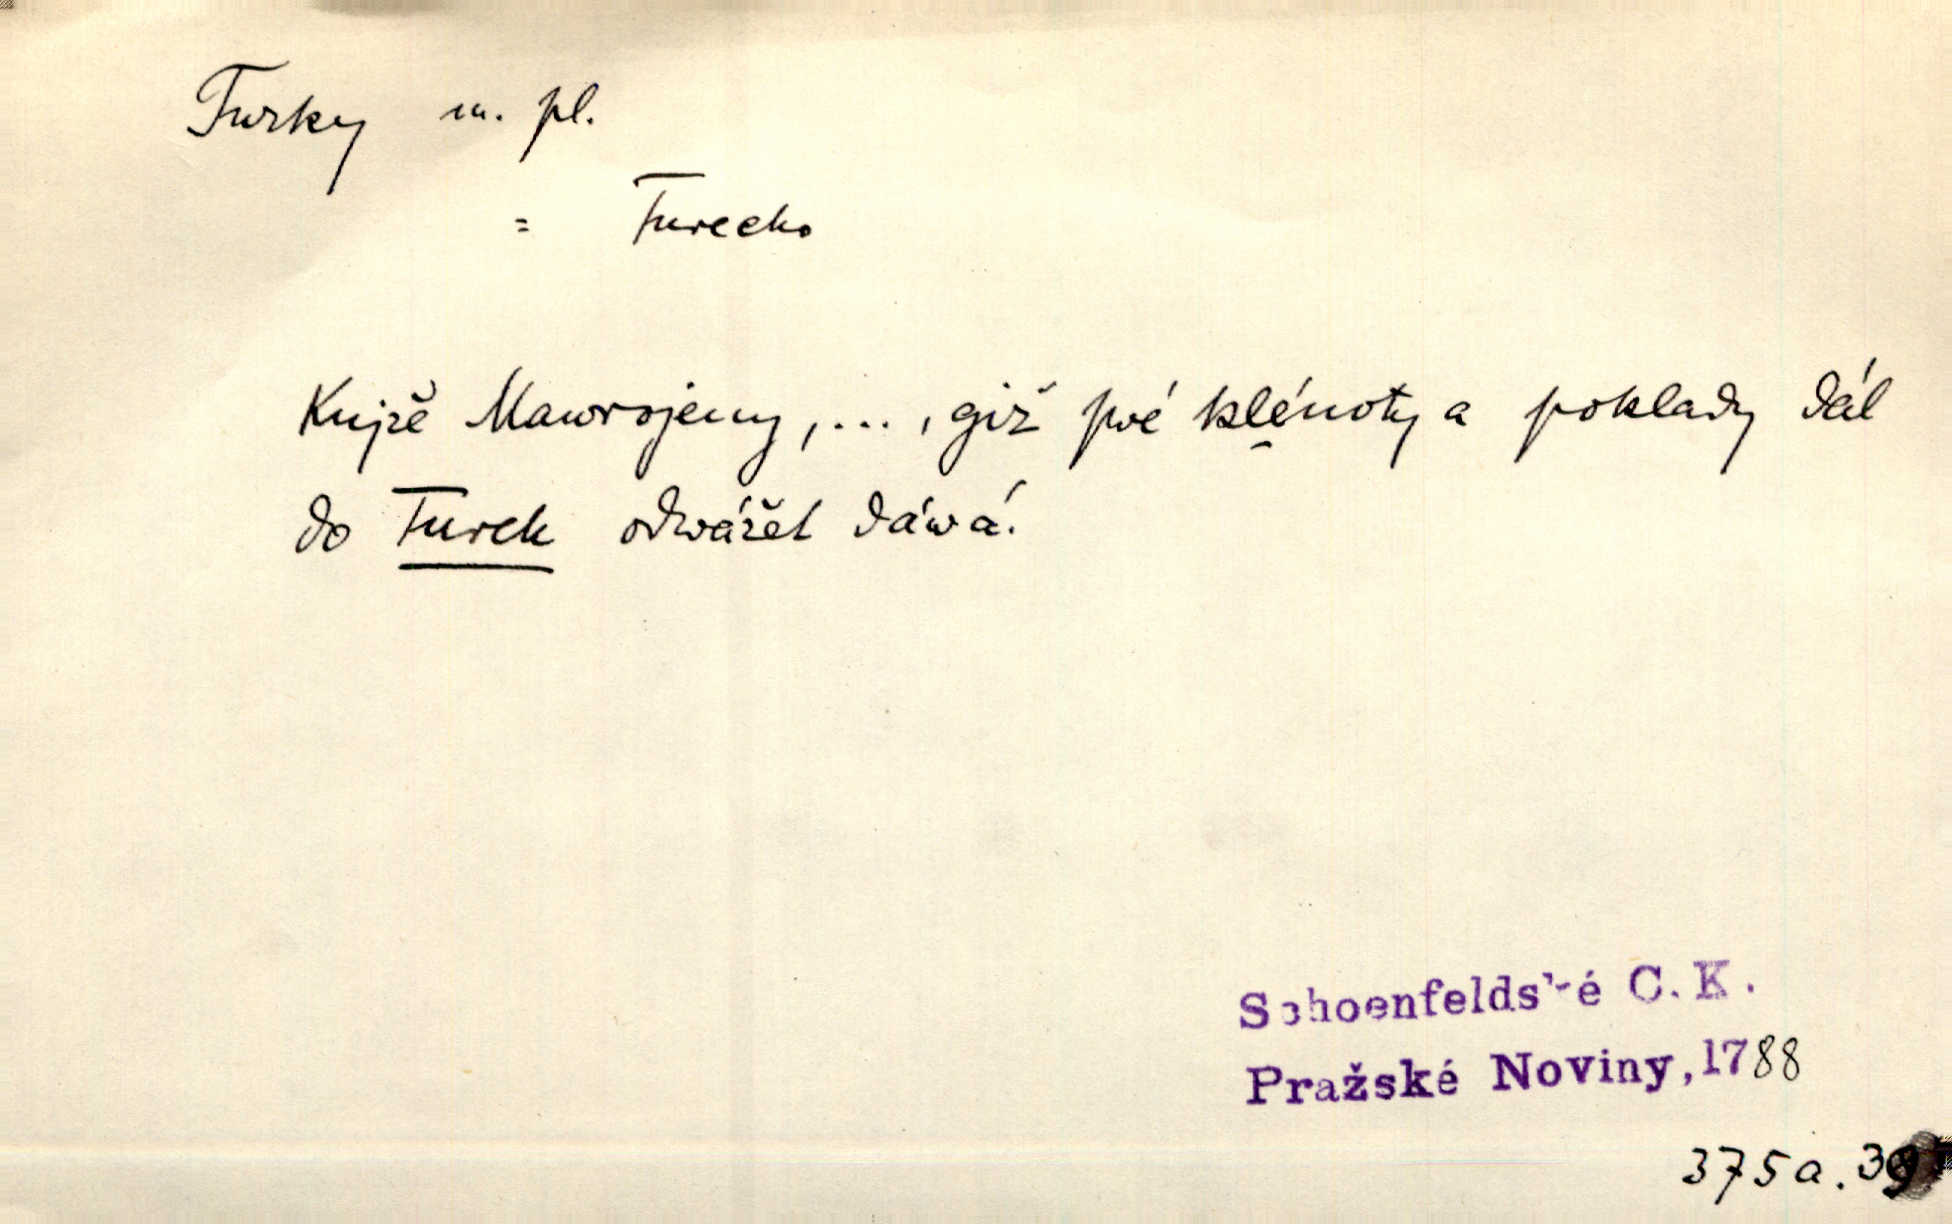 Turky m. pl.
= Turecko
Knjžě Mawrojeny, ... , giž své klénoty a poklady dál
do Turek odwážet dáwá.
Schoenfeldské C. K.
Pražské Noviny, 1788
375a.